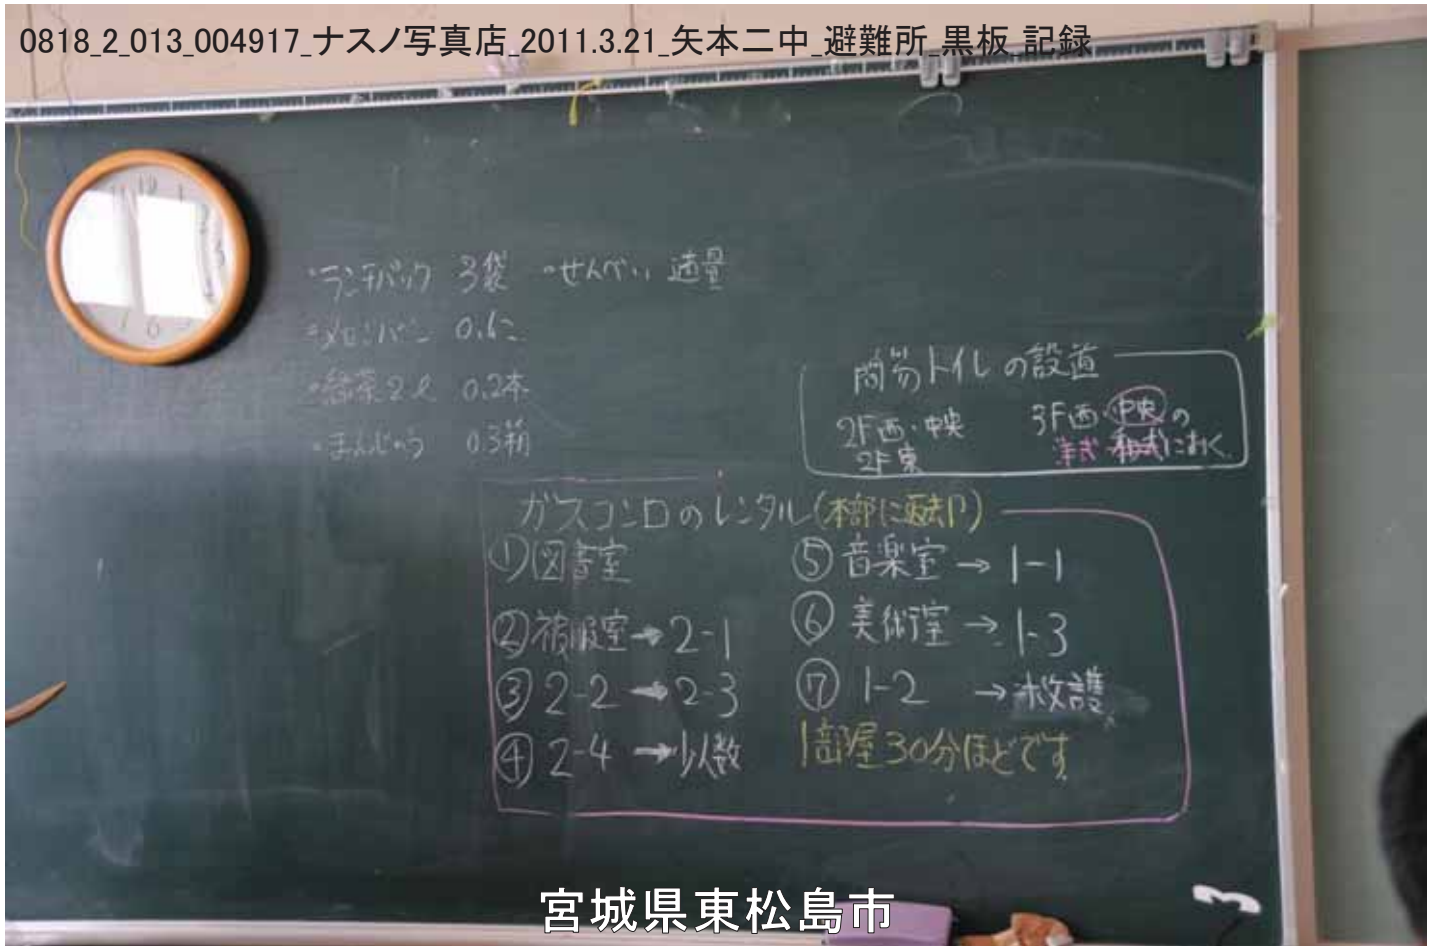 0818_2_013_004917_ナスノ写真店_2011.3.21_矢本二中_避難所_黒板_記録
・ランチパック 3袋 ・せんべい 適量
・メロンパン 0.6こ
・緑茶2ℓ 0.2本
・まんじゅう 0.3箱
簡易トイレの設置
2F西・中央
2F東
3F西・中央の
洋式 和式におく
ガスコンロのレンタル(本部に返却)
①図書室
②被服室→2-1
③2-2→2-3
④2-4→少人数
⑤音楽室→1-1
⑥美術室→1-3
⑦1-2→救護
1部屋30分ほどです
宮城県東松島市